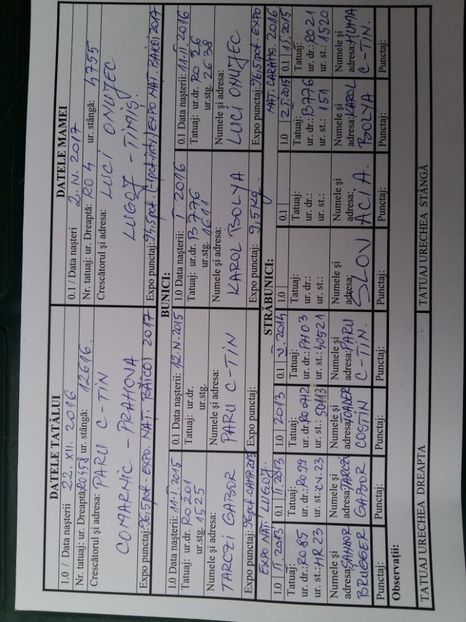 DATELE TATALUI
1.0 / Data nașterii 22. XII. 2016
Nr. tatuaj: ur. Dreaptă: RO158 ur. stângă: 12616
Crescătorul și adresa: PARU C-TIN
COMARNIC - PRAHOVA
Expo punctaj: 96.5pct - EXPO. NAT. BĂICOI 2017
DATELE MAMEI
0.1 / Data nașterii 2. IV. 2017
Nr. tatuaj: ur. Dreaptă: RO 4 ur. stângă: 4755
Crescătorul și adresa: LUCI ONUȚEC
LUGOJ - TIMIȘ!
Expo punctaj: EXPO NAT. BĂICOI 2017
BUNICI:
1.0 Data nașterii: 11. I 2015
Tatuaj: ur.dr: RO 201
ur.stg. 1525
Numele și adresa:
TARCZI GABOR
Expo punctaj:
EXPO NAT. LUGOJ
0.1 Data nașterii: 12. IV. 2015
Tatuaj: ur.dr.
ur.stg.
Numele și adresa:
PARU C-TIN
Expo punctaj:
1.0 Data nașterii: I 2016
Tatuaj: ur.dr: B776
ur.stg. 1611
Numele și adresa:
KAROL BOLYA
Expo punctaj: 9,5kg.
0.1 Data nașterii: 11. II. 2016
Tatuaj: ur.dr: RO 26
ur.stg. 26 38
Numele și adresa:
LUCI ONUȚEC
Expo punctaj: 96.5pct. EXPO
NAT. CARANS. 2016
STRĂBUNICI:
1.0 II 2013
Tatuaj:
ur. dr.: RO 85
ur. st.: HR23
Numele și
adresa: SANDOR
BRUGGER
Punctaj:
0.1 II. 2013
Tatuaj:
ur. dr.: RO 99
ur. st.: CN.23
Numele și
adresa:
GABOR
Punctaj:
1.0 2013
Tatuaj:
ur. dr.:
ur. st.: SD113
Numele și
adresa:
COSTIN
Punctaj:
0.1 IV. 2014
Tatuaj:
ur. dr.: PH03
ur. st.: 40521
Numele și
adresa: PARU
C-TIN.
Punctaj:
1.0
Tatuaj:
ur. dr.:
ur. st.:
Numele și
adresa:
SLOVACIA.
Punctaj:
0.1
Tatuaj:
ur. dr.:
ur. st.:
Numele și
adresa,
Punctaj:
1.0 2. I. 2015
Tatuaj:
ur. dr.: B776
ur. st.: 151
Numele și
adresa: KAROL
BOLYA
Punctaj:
0.1 1. 1. 2015
Tatuaj:
ur. dr.: RO21
ur. st.: 1520
Numele și
adresa: HUMA
C-TIN.
Punctaj:
Observații:
TATUAJ URECHEA DREAPTA
TATUAJ URECHEA STÂNGĂ